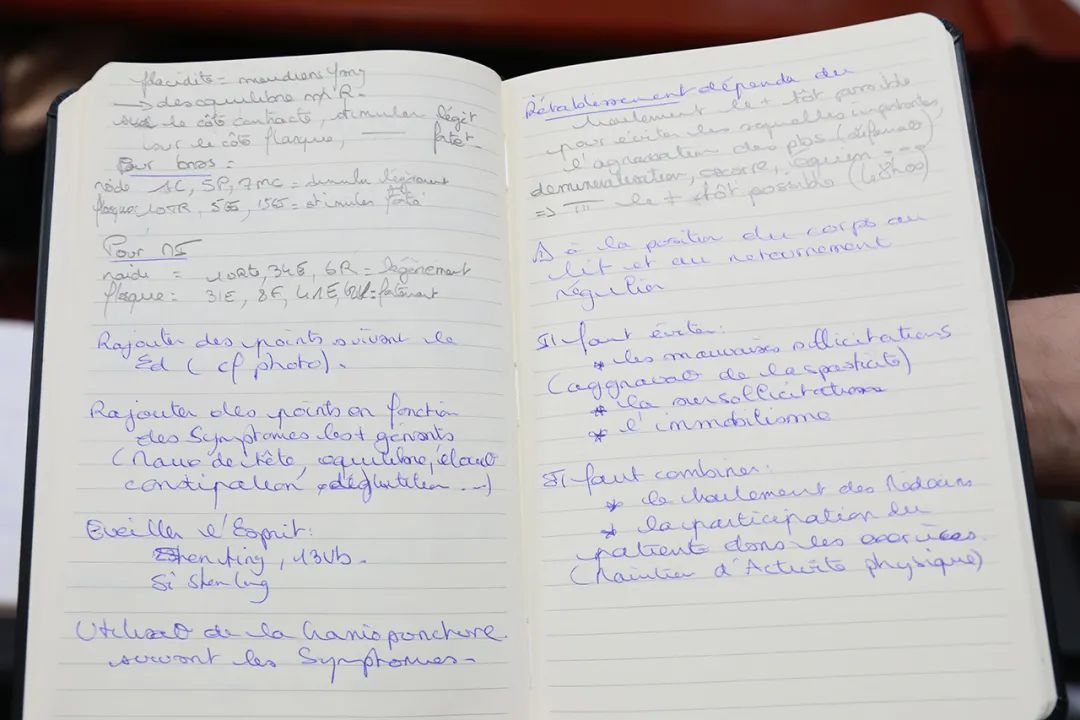 flacidité = méridiens Yang
→ desequilibre
le côté contracté, stimuler légèrt
sur le côté flasque, —— fortet.
Pour bras :
raide 1C, 5P, 7MC = stimuler légèrement
flasque 10TR, 5GI, 15GI = stimuler forte
Pour MI
raide = 34E, 6R = légèrement
flasque : 31E, 8F, 41E, = fortement
Rajouter des points suivant le
Ed (cf photo).
Rajouter des points en fonction
des Symptomes les + gênants
(Maux de tête, equilibre,
constipation, déglutition ...)
Eveiller l'Esprit :
Shen Ting, 13Vb.
Si Shen Cong
Utilisa° de la Craniopuncture
suivant les Symptomes.
Rétablissement dépend du
traitement le + tôt possible
pour éviter les séquelles importantes,
l'aggravation des pbs (déforma°)
demineralisation, escarre, équin ---
⇒ TTT le + tôt possible (48h00)
⚠ à la position du corps au
lit et au retournement
régulier
Il faut éviter :
* les mauvaises sollicitations
(aggrava° de la spasticité)
* la sursollicitation
* l'immobilisme
Il faut combiner :
* le traitement des Médecins
* la participation du
patient dans les exercices
(Maintien d'Activité physique)